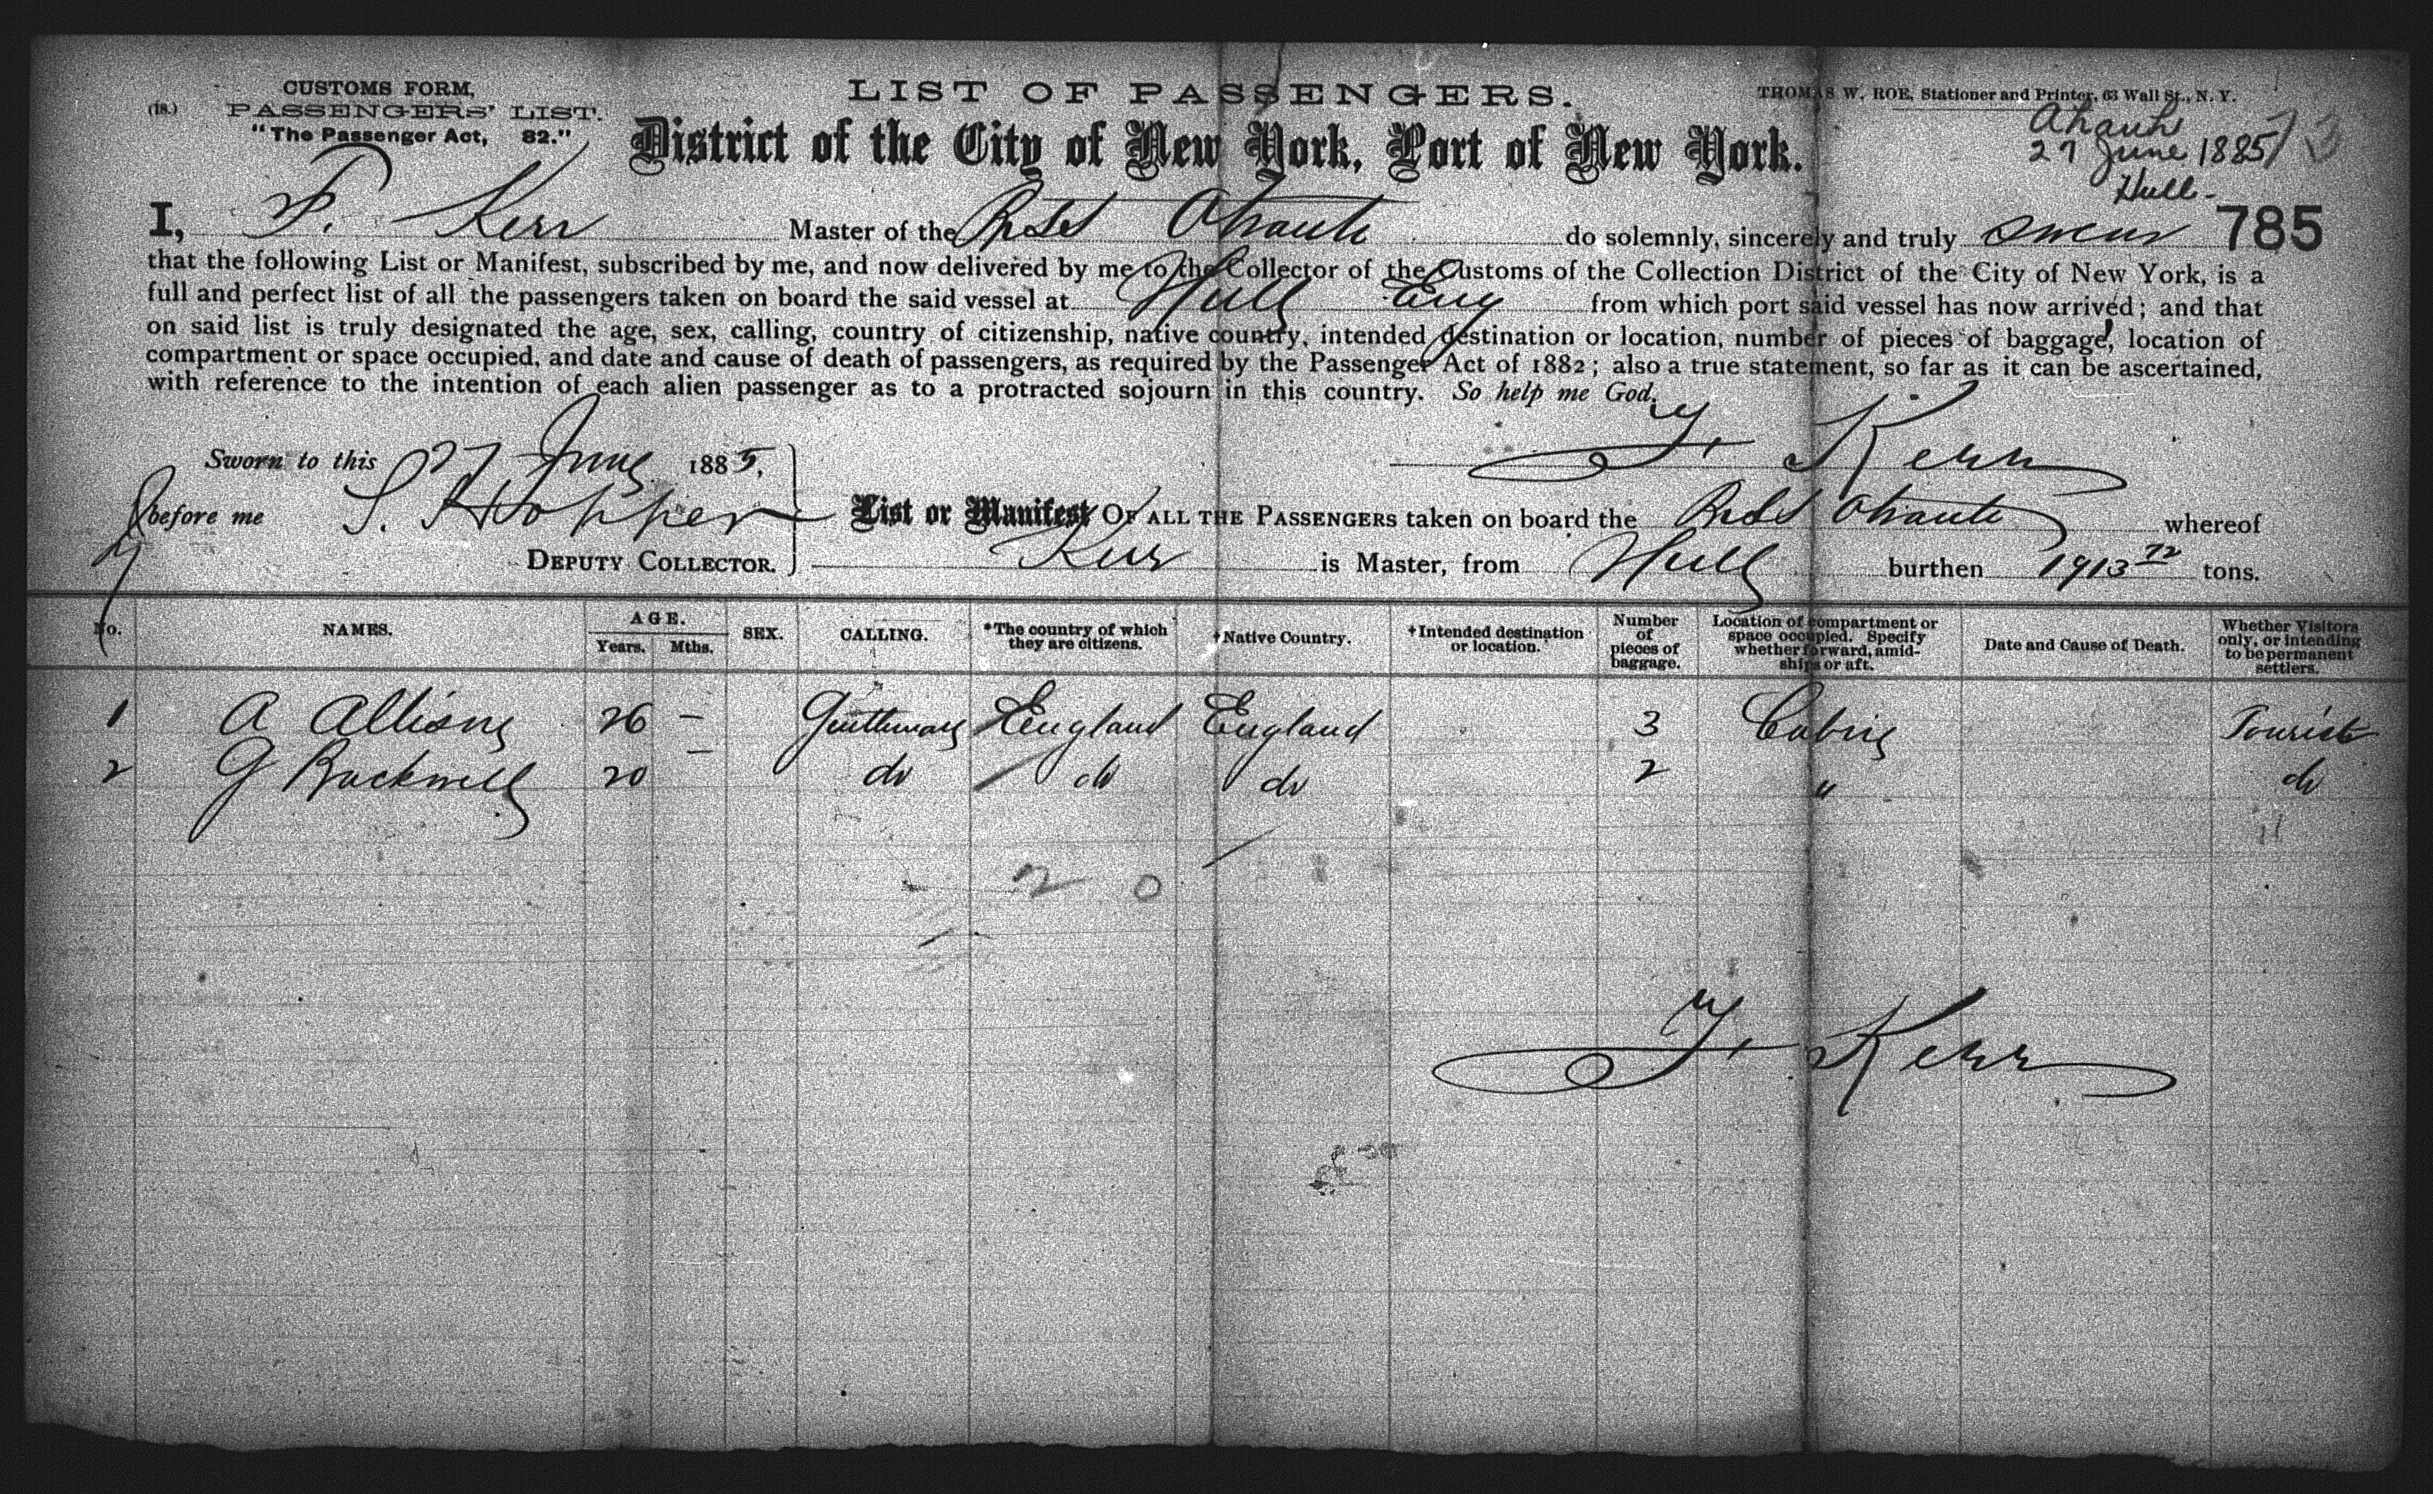 CUSTOMS FORM,
(18.) PASSENGERS' LIST.
"The Passenger Act, 82."
LIST OF PASSENGERS.
THOMAS W. ROE, Stationer and Printer, 63 Wall St., N. Y.
District of the City of New York, Port of New York.
27 June 1885
Hull
785
I, F. Kerr Master of the do solemnly, sincerely and truly swear
that the following List or Manifest, subscribed by me, and now delivered by me to the Collector of the Customs of the Collection District of the City of New York, is a
full and perfect list of all the passengers taken on board the said vessel at Hull Eng from which port said vessel has now arrived; and that
on said list is truly designated the age, sex, calling, country of citizenship, native country, intended destination or location, number of pieces of baggage, location of
compartment or space occupied, and date and cause of death of passengers, as required by the Passenger Act of 1882; also a true statement, so far as it can be ascertained,
with reference to the intention of each alien passenger as to a protracted sojourn in this country. So help me God.
F. Kerr
Sworn to this 27 June 1885,
before me S. Hopper
DEPUTY COLLECTOR.
List or Manifest OF ALL THE PASSENGERS taken on board the whereof
Kerr is Master, from Hull burthen 1913 72 tons.
No. NAMES. AGE. Years. Mths. SEX. CALLING. *The country of which they are citizens. †Native Country. †Intended destination or location. Number of pieces of baggage. Location of compartment or space occupied. Specify whether forward, amidships or aft. Date and Cause of Death. Whether Visitors only, or intending to be permanent settlers.
1 A Allison 26 — Gentleman England England 3 Cabin Tourist
2 G Backwell 20 — do do do 2 " do
2 0
F. Kerr